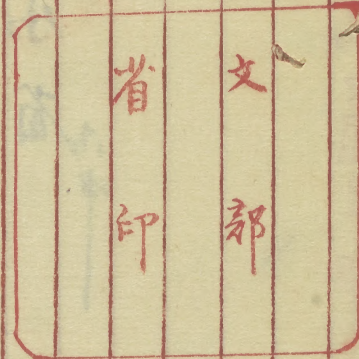 文部
省印